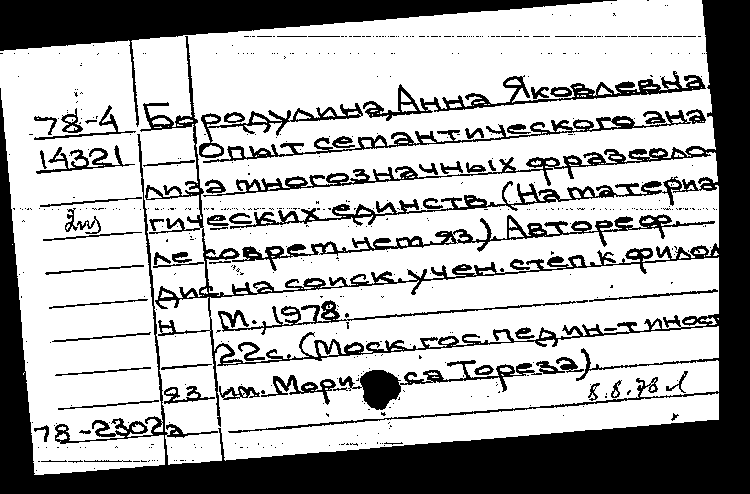 78-4 Бородулина, Анна Яковлевна.
14321 Опыт семантического ана-
лиза многозначных фразеоло-
2пз гических единств. (На материа-
ле соврем. нем. яз.). Автореф.
дис. на соиск. учен. степ. к. филол.
н М., 1978.
22с. (Моск. гос. пед. ин-т иност
яз им. Мори са Тореза).
8.8.78 л
78-2302а